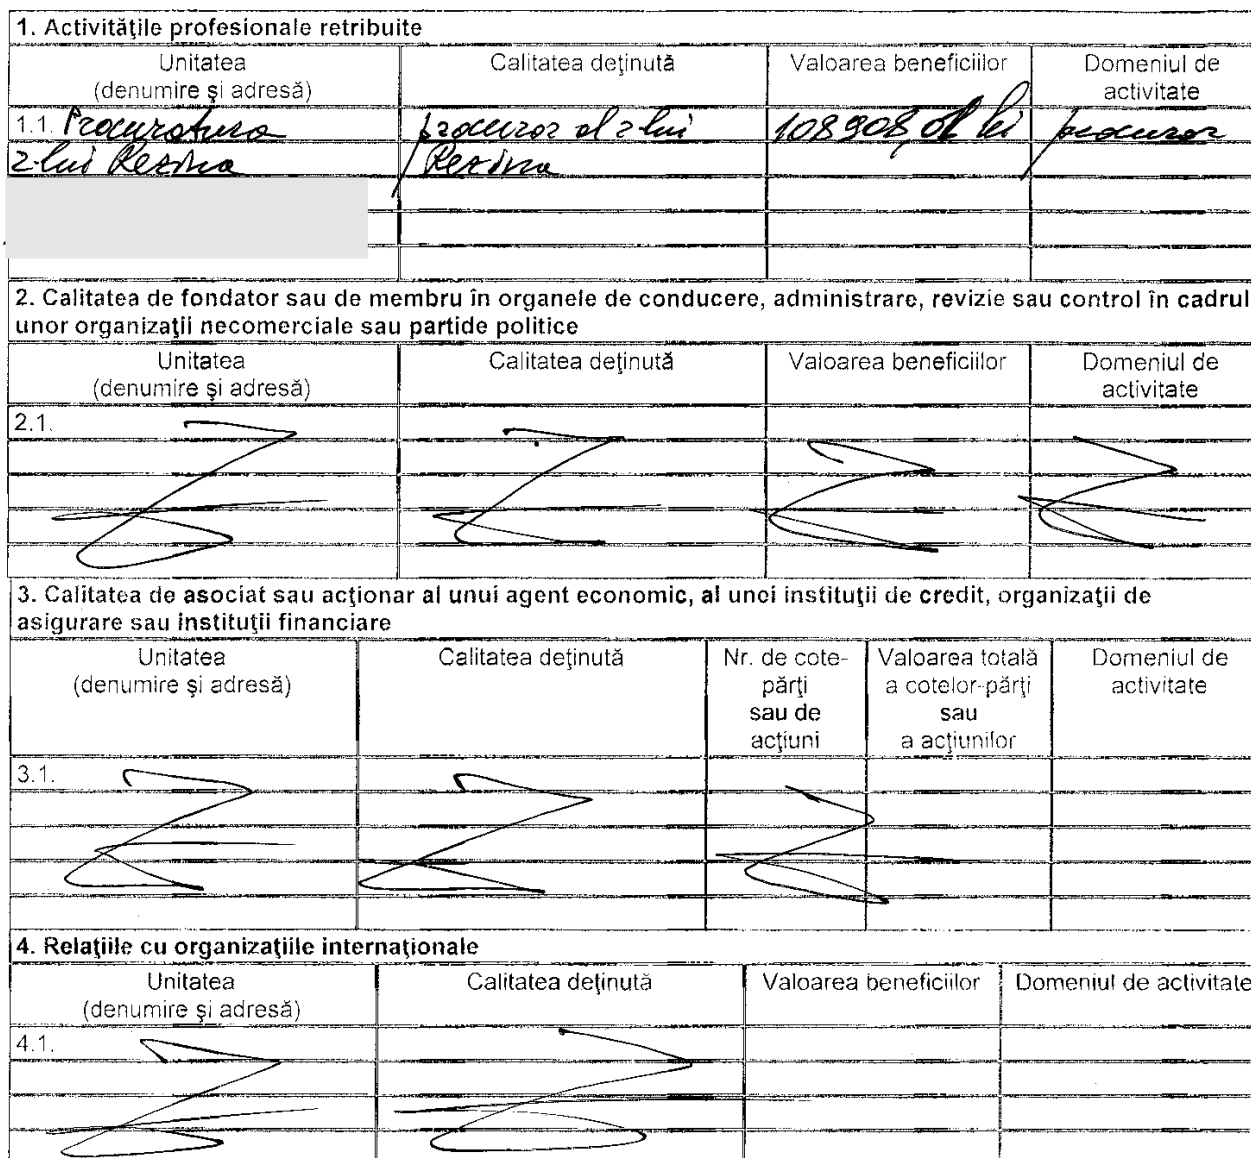 1. Activităţile profesionale retribuite
Unitatea
(denumire şi adresă)
Calitatea deţinută
Valoarea beneficiilor
Domeniul de
activitate
1.1. Procuratura
r-lui Rezina
procuror al r-lui
Rezina
108908,01 lei
procuror
2. Calitatea de fondator sau de membru în organele de conducere, administrare, revizie sau control în cadrul
unor organizaţii necomerciale sau partide politice
Unitatea
(denumire şi adresă)
Calitatea deţinută
Valoarea beneficiilor
Domeniul de
activitate
2.1.
3. Calitatea de asociat sau acţionar al unui agent economic, al unei instituţii de credit, organizaţii de
asigurare sau instituţii financiare
Unitatea
(denumire şi adresă)
Calitatea deţinută
Nr. de cote-
părţi
sau de
acţiuni
Valoarea totală
a cotelor-părţi
sau
a acţiunilor
Domeniul de
activitate
3.1.
4. Relaţiile cu organizaţiile internaţionale
Unitatea
(denumire şi adresă)
Calitatea deţinută
Valoarea beneficiilor
Domeniul de activitate
4.1.